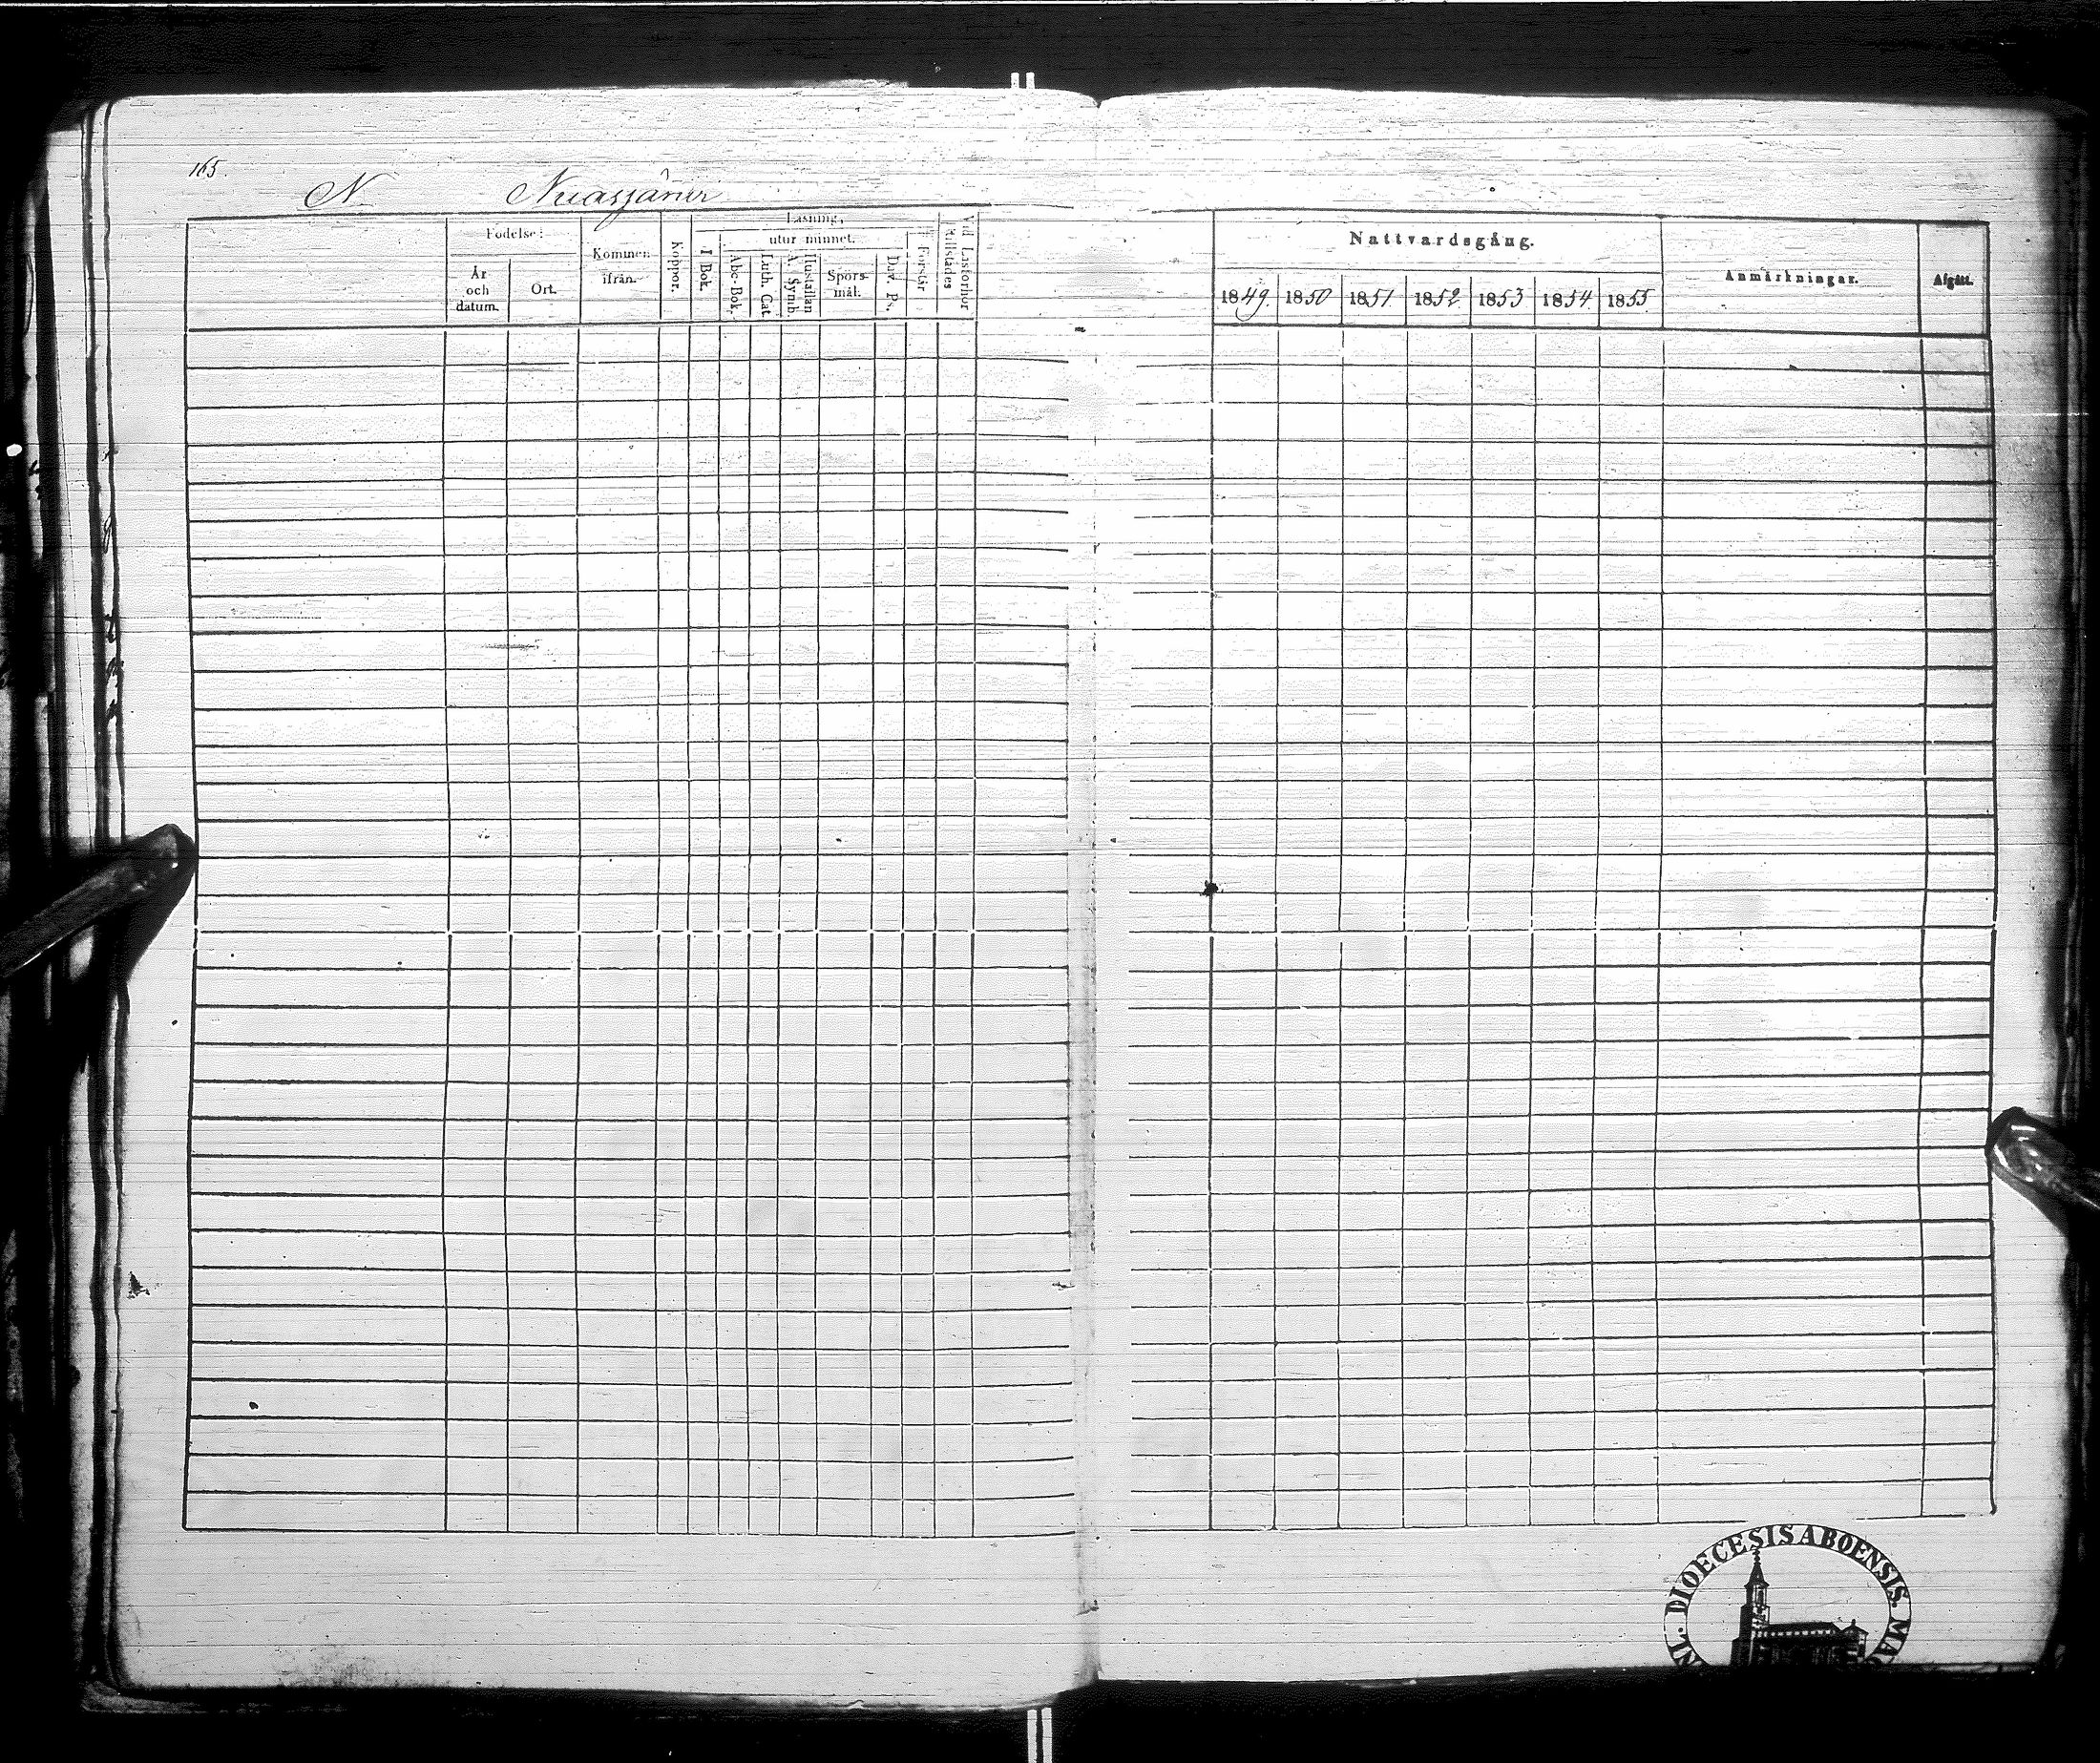 165.
N Nuasjäner
Födelse:
År och datum.
Ort.
Kommen ifrån.
Koppor.
Läsning,
I Bok.
utur minnet.
Abc-Bok.
Luth. Cat.
Hustaflan A. Symb.
Spörs-mål.
Dav. Ps.
Förstår
Vid Läsförhör tillstädes
Nattvardsgång.
1849. 1850 1851. 1852 1853 1854. 1855.
Anmärkningar.
Afgått.
NL. DIOECESIS ABOENSIS. MA